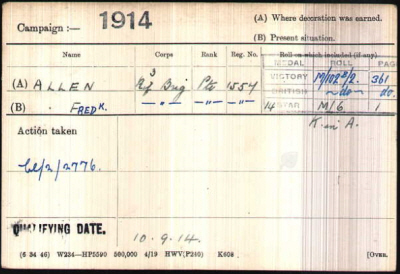 Campaign :— 1914
(A) Where decoration was earned.
(B) Present situation.
Name Corps Rank Reg. No. Roll on which included (if any).
MEDAL ROLL PAGE
3
(A) ALLEN Rif Brig Pte 1554 VICTORY M/102B/2. 361
(B) " FREDK. —"— —"— —"— BRITISH —do— do.
14 STAR M/6 1
Action taken K. in A.
CL/2/2776.
QUALIFYING DATE. 10.9.14.
(6 34 46) W234—HP5590 500,000 4/19 HWV(P240) K608 [OVER.